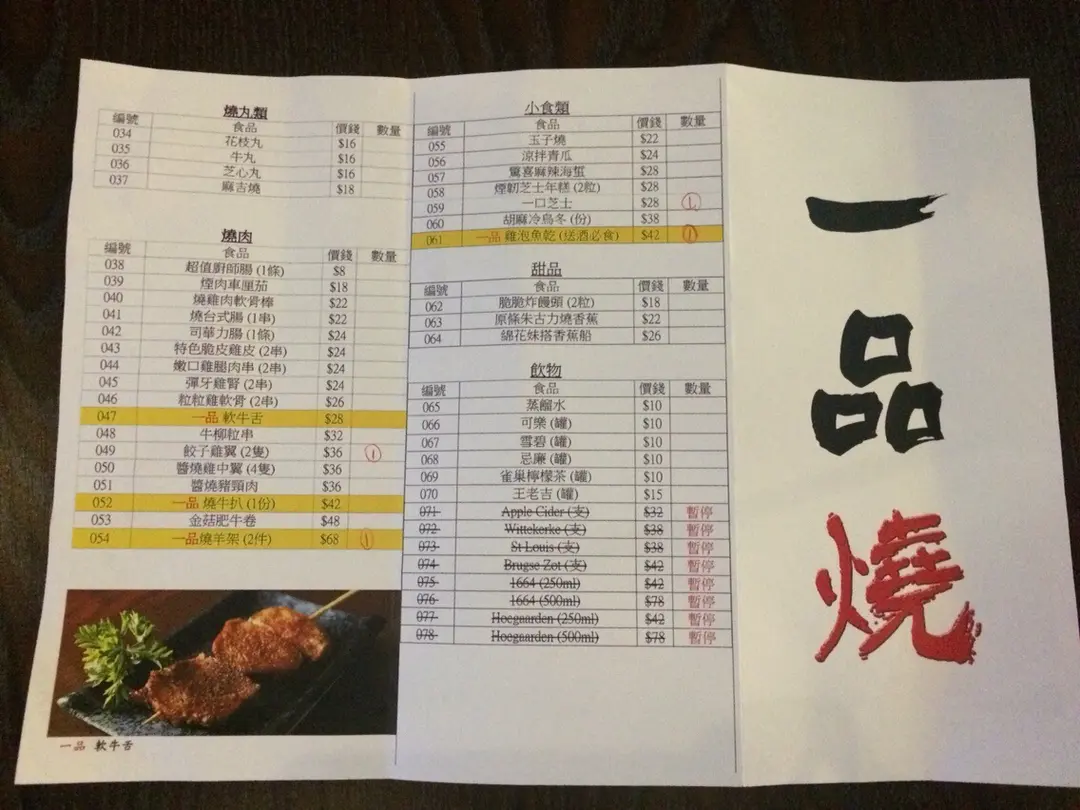 燒丸類
編號 食品 價錢 數量
034 花枝丸 $16
035 牛丸 $16
036 芝心丸 $16
037 麻吉燒 $18
燒肉
編號 食品 價錢 數量
038 超值廚師腸 (1條) $8
039 煙肉車厘茄 $18
040 燒雞肉軟骨棒 $22
041 燒台式腸 (1串) $22
042 司華力腸 (1條) $24
043 特色脆皮雞皮 (2串) $24
044 嫩口雞腿肉串 (2串) $24
045 彈牙雞腎 (2串) $24
046 粒粒雞軟骨 (2串) $26
047 一品 軟牛舌 $28
048 牛柳粒串 $32
049 餃子雞翼 (2隻) $36 1
050 醬燒雞中翼 (4隻) $36
051 醬燒豬頸肉 $36
052 一品 燒牛扒 (1份) $42
053 金菇肥牛卷 $48
054 一品燒羊架 (2件) $68 1
一品 軟牛舌
小食類
編號 食品 價錢 數量
055 玉子燒 $22
056 涼拌青瓜 $24
057 驚喜麻辣海蜇 $28
058 煙韌芝士年糕 (2粒) $28
059 一口芝士 $28 1
060 胡麻冷烏冬 (份) $38
061 一品 雞泡魚乾 (送酒必食) $42 1
甜品
編號 食品 價錢 數量
062 脆脆炸饅頭 (2粒) $18
063 原條朱古力燒香蕉 $22
064 綿花妹搭香蕉船 $26
飲物
編號 食品 價錢 數量
065 蒸餾水 $10
066 可樂 (罐) $10
067 雪碧 (罐) $10
068 忌廉 (罐) $10
069 雀巢檸檬茶 (罐) $10
070 王老吉 (罐) $15
071 Apple Cider (支) $32 暫停
072 Wittekerke (支) $38 暫停
073 St Louis (支) $38 暫停
074 Brugse Zot (支) $42 暫停
075 1664 (250ml) $42 暫停
076 1664 (500ml) $78 暫停
077 Hoegaarden (250ml) $42 暫停
078 Hoegaarden (500ml) $78 暫停
一品燒